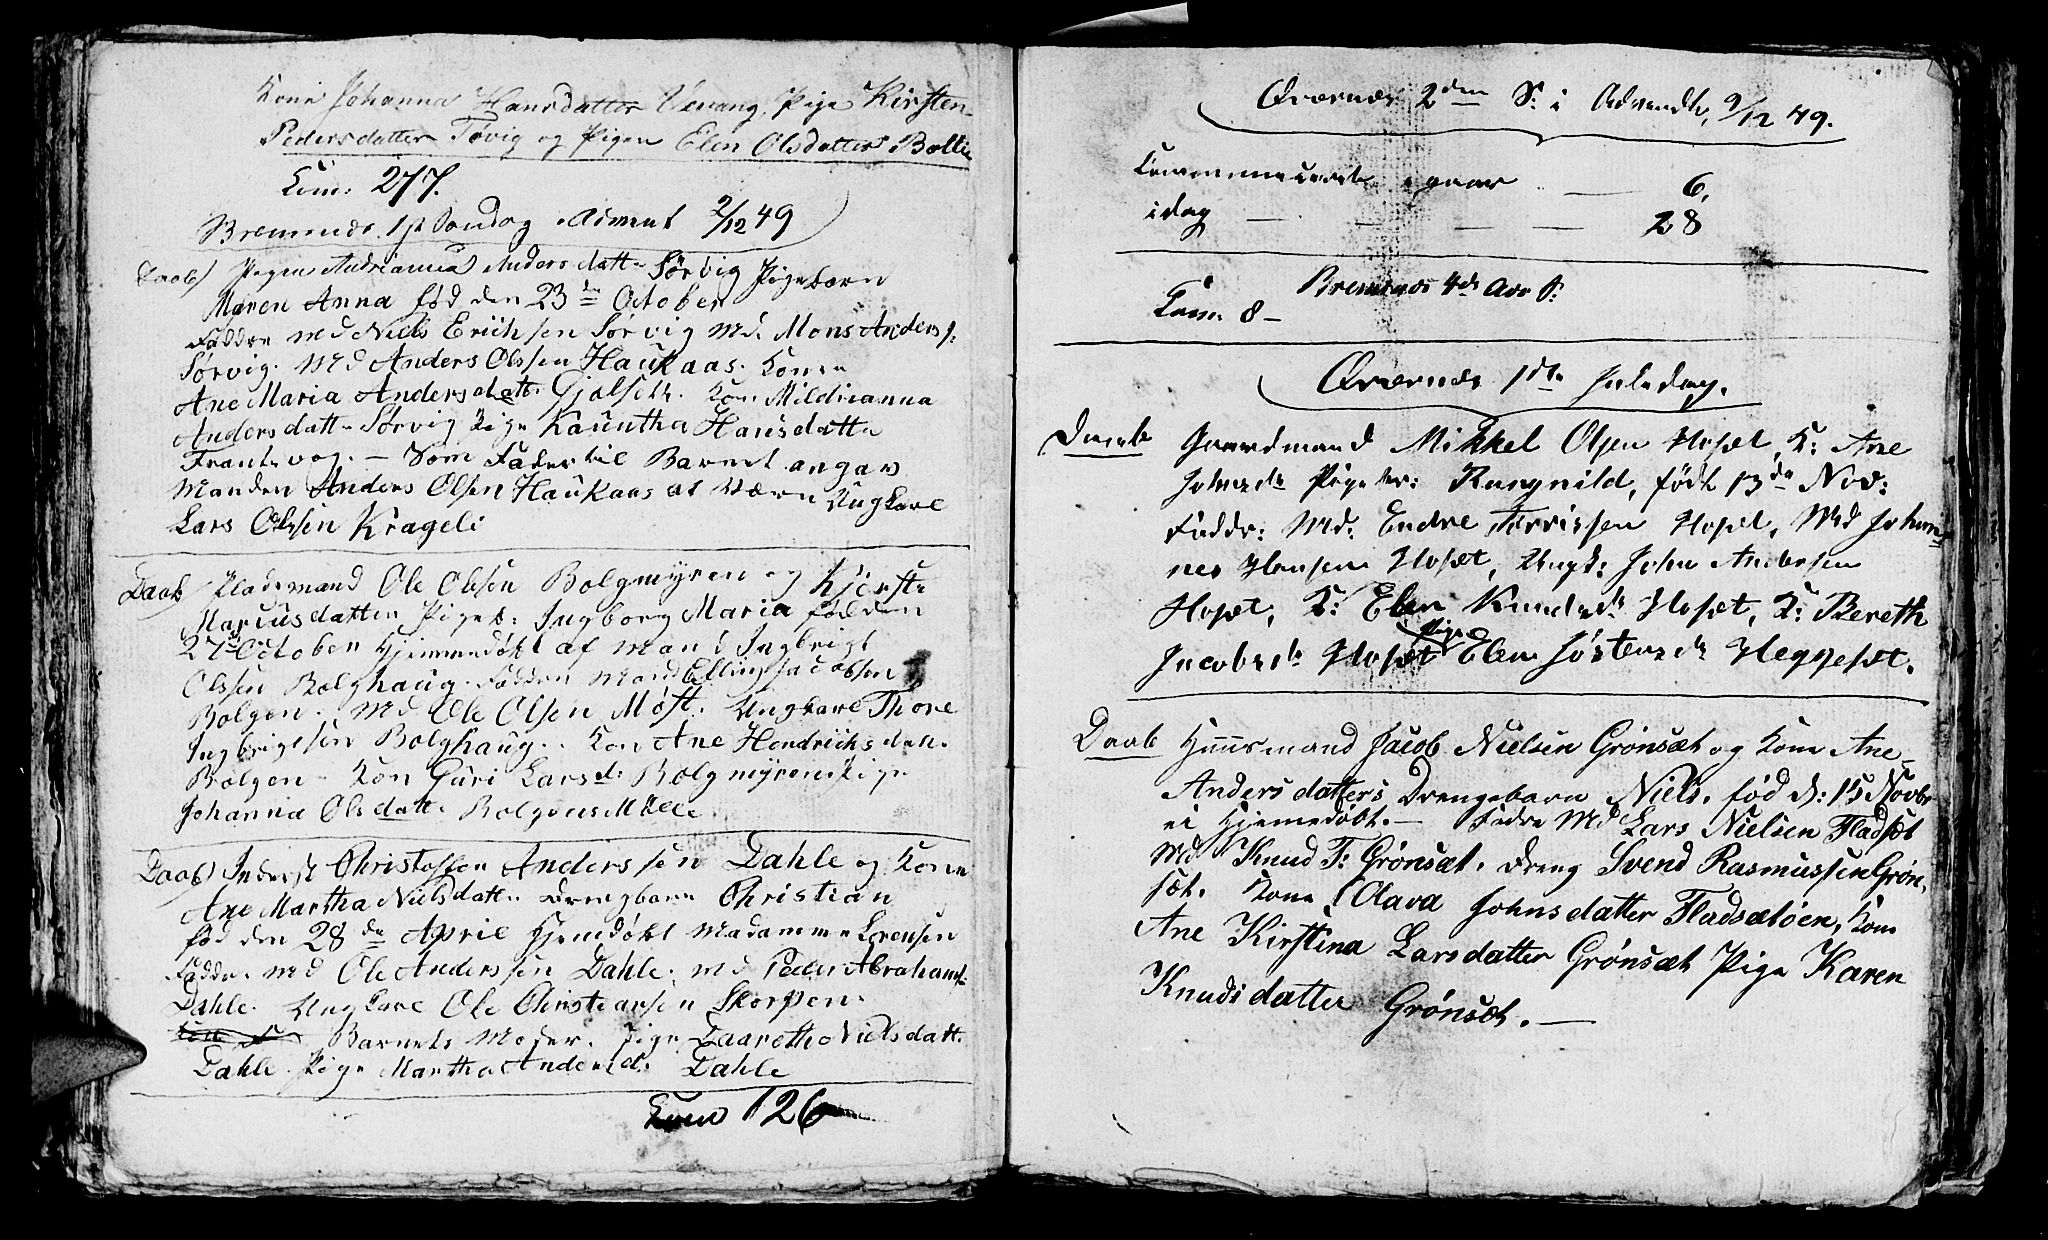 Kone Johanna Hansdatter Vevang, Pige Kirsten
Pedersdatter Tøvig og Pigen Elen Olsdatter Bolli
Com: 277.
Bremsnæs 1ste Søndag Advent 2/12 49
Daab/ Pigen Andrianna Andersdatt. Sørvig Pigebarn
Maren Anna fød den 23de October
Faddre Md Niels Erichsen Sørvig Md. Mons Anders.
Sørvig. Md Anders Olssen Haukaas. Konen
Ane Maria Andersdatt. Gjølseth. Kon Mildrianna
Andersdatt. Sørvig Pige Hansdatte
Frantsvog. – Som Fader til Barnet angav
Manden Anders Olsen Haukaas at være Ungkarl
Lars Olssen Krageli
Daab/ Pladsmand Ole Olssen Bolgmyren og Kjerste
Marcusdatter Pigeb: Ingborg Maria fød den
27de October Hjemmedøbt af Mand Ingbrigt
Olssen Bolghaug. Faddre Mand Elling Jacobsen
Bolgen. Md Ole Olsen Møst. Ungkarl Thore
Ingbrigtsen Bolghaug. Kon Ane Hendrichsdatt.
Bolgen. Kon Guri Larsd: Bolgmyren Pige
Johanna Olsdatt. Bolgens
Daab/ Inderst Christoffen Anderssen Dahle og Kone
Ane Martha Nielsdatt. Drengbarn Christian
fød den 28de April Hjemdøbt Madamme Lorensen
Faddre. Md Ole Anderssen Dahle. Md Peder Abrahams.
Dahle. Ungkarl Ole Christiansen Skorpen.
Barnets Moder. Pige Daaretha Nielsdatt.
Dahle. Pige Martha Andersd: Dahle
Com 126
Qværnæs 2den S: i Advendt, 9/12 49.
Communicerede igaar – 6,
idag – – – – 28
Bremsnæs 4de Adv S:
Com: 8 –
Qværnæs 1ste Juledag.
Daab Gaardmand Mikkel Olsen Hoset, K: Ane
Johnsdr Pigebr: Rangnild, født 13de Nov:
Faddr: Md: Endre Torrissen Hoset, Md Johan-
nes Hansen Hoset, Ungk: John Andersen
Hoset, K: Elen Knudsdr Hoset, K: Bereth
Jacobsdr Hoset Pige Elen Jostensdr Heggeset.
Daab Huusmand Jacob Nielsen Grønsæt og Kone Ane
Andersdatters Drengebarn Niels, fød d: 15 Novbr
ei Hjemedøbt. – Fadre Md Lars Nielsen Fladsæt
Md Knud T: Grønsæt, Dreng Svend Rasmussen Grøn-
sæt. Kone Olava Johnsdatter Fladsætøen, Kone
Ane Kirstina Larsdatter Grønsæt Pige Karen
Knudsdatter Grønsæt. –